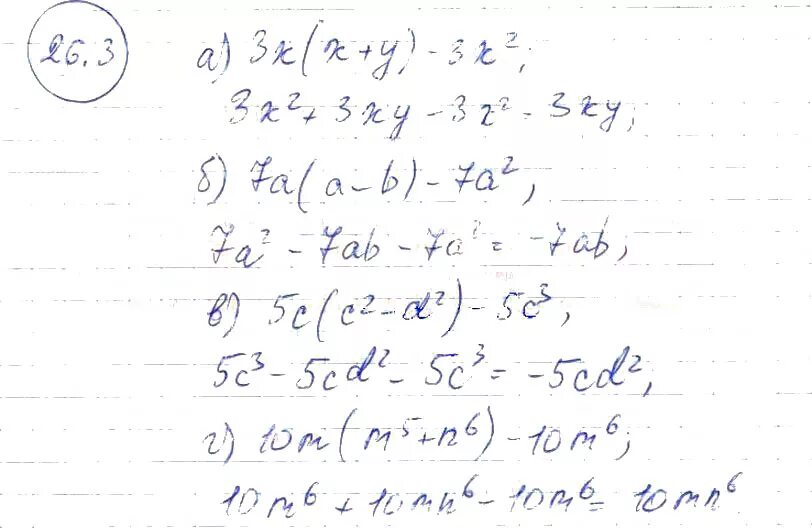 26.3
а) 3x(x+y) - 3x²;
3x² + 3xy - 3x² = 3xy;
б) 7a(a-b) - 7a²,
7a² - 7ab - 7a² = -7ab;
в) 5c(c²-d²) - 5c³,
5c³ - 5cd² - 5c³ = -5cd²;
г) 10m(m⁵+n⁶) - 10m⁶;
10m⁶ + 10mn⁶ - 10m⁶ = 10mn⁶